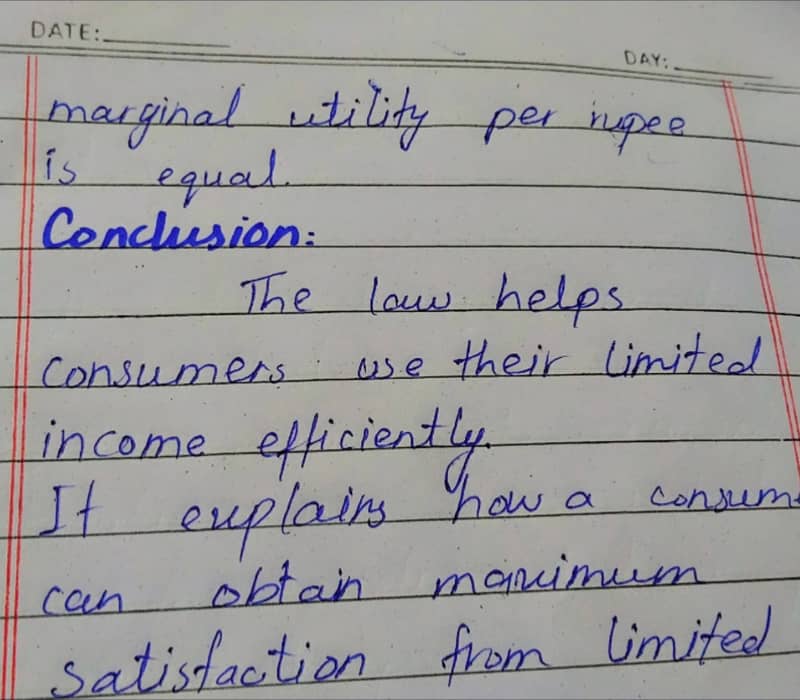 DATE:
DAY:
marginal utility per rupee
is equal.
Conclusion:
The law helps
consumers use their limited
income efficiently.
It explains how a consum
can obtain maximum
satisfaction from limited